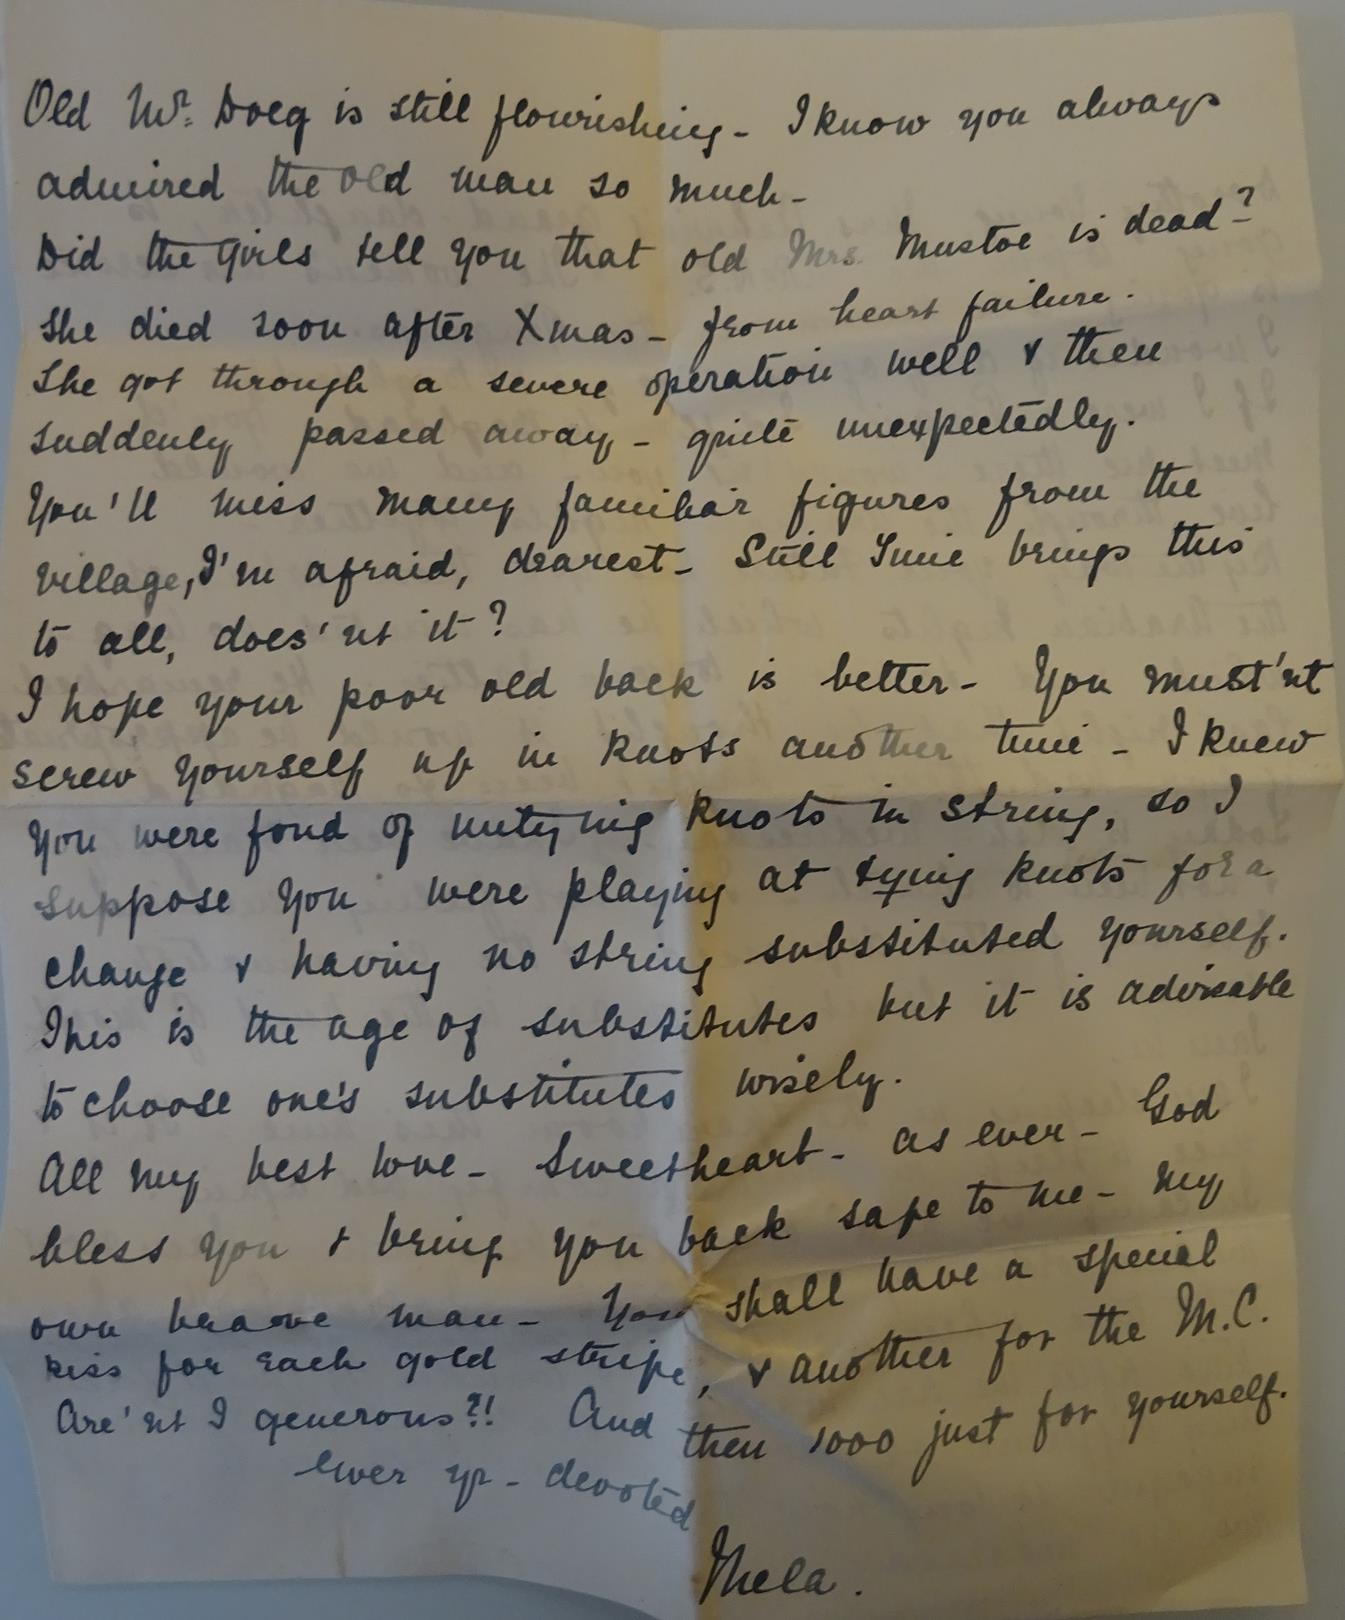 Old Mr. Doeg is still flourishing - I know you always
admired the old man so much -
Did the girls tell you that old Mrs. Mustoe is dead?
She died soon after Xmas - from heart failure.
She got through a severe operation well & then
suddenly passed away - quite unexpectedly.
You'll miss many familiar figures from the
village, I'm afraid, dearest - Still Time brings this
to all, does'nt it?
I hope your poor old back is better - You must'nt
screw yourself up in knots another time - I knew
you were fond of untying knots in string, so I
suppose you were playing at tying knots for a
change & having no string substituted yourself.
This is the age of substitutes but it is advisable
to choose one's substitutes wisely.
All my best love - Sweetheart - as ever - God
bless you & bring you back safe to me - my
own brave man - You shall have a special
kiss for each gold stripe, & another for the M.C.
Are'nt I generous?! And then 1000 just for yourself.
Ever yr - devoted
Thela.